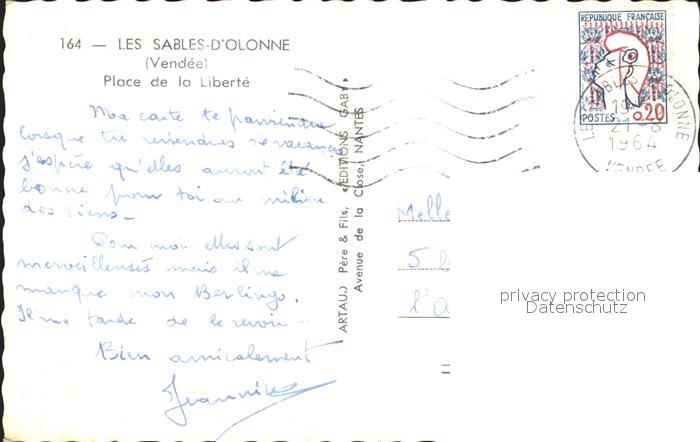 164 — LES SABLES-D'OLONNE
(Vendée)
Place de la Liberté
Ma carte te parviendra
lorsque tu reviendras de vacances
j'espère qu'elles auront été
bonne pour toi au milieu
des tiens—
Pour moi elles sont
merveilleuses mais il me
manque mon Berlingo.
Il me tarde de le revoir—
Bien amicalement
Jeannine
ARTAUD Père & Fils, «EDITIONS GABY»
Avenue de la Close, NANTES
REPUBLIQUE FRANÇAISE
POSTES 0,20
OLONNE
21-8
1964
VENDEE
Melle
5
l'A
privacy protection
Datenschutz